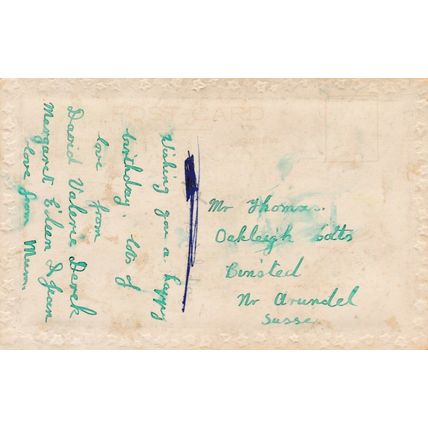 Wishing you a happy
birthday, lots of
love from
David Valerie Derek
Margaret Eileen & Jean
love from Mum
Mr Thomas.
Oakleigh Cotts
Binsted
Nr Arundel
Sussex